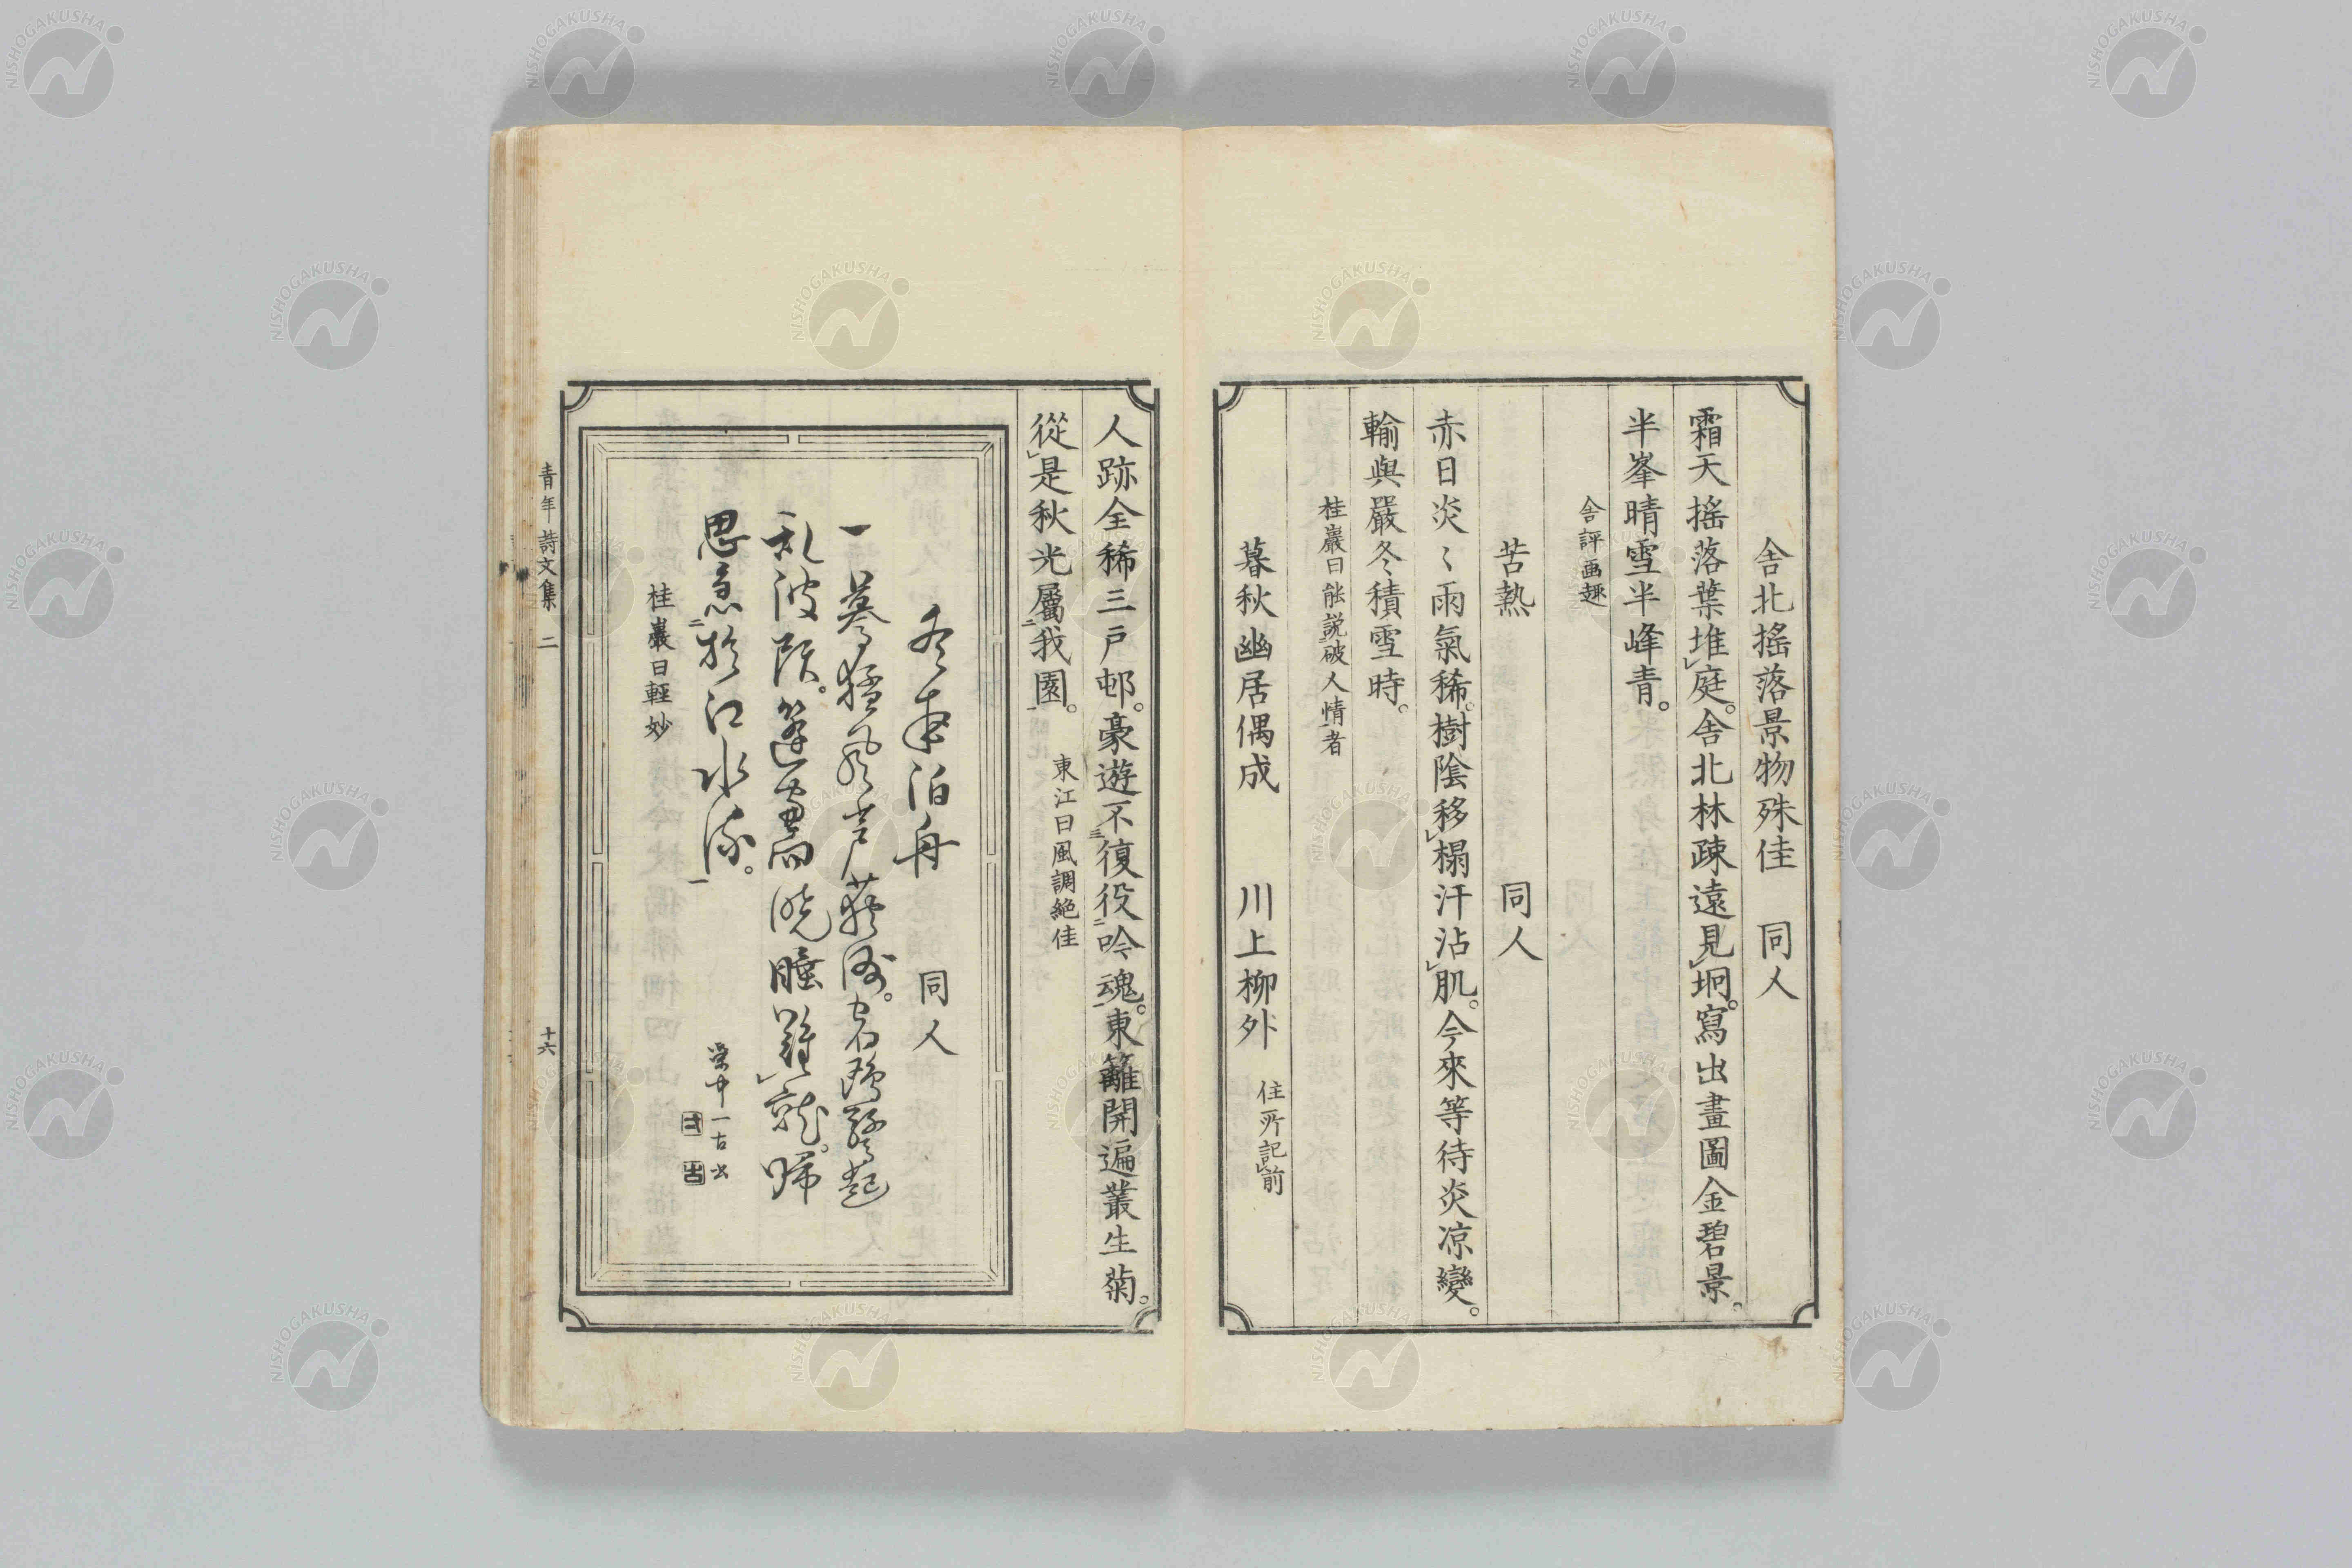 舎北搖落景物殊佳　同人
霜天搖落葉堆庭。舎北林疎遠見坰。寫出畫圖金碧景。
半峯晴雪半峰青。
舎評画趣
苦熱　同人
赤日炎〻雨氣稀。樹陰移榻汗沾肌。今來等待炎凉變。
輸與嚴冬積雪時。
桂巖曰能説破人情者
暮秋幽居偶成　川上柳外　住所記前
人跡全稀三戸邨。豪遊不復役吟魂。東籬開遍叢生菊。
從是秋光屬我園。
東江曰風調絶佳
冬夜泊舟　同人
一夢猛風芦荻洲。宕鴻驚起
乱波頭。篷窓雨曉睡難就。歸
思急於江水流。
一古書
桂巖曰輕妙
青年詩文集　二　十六
NISHOGAKUSHA